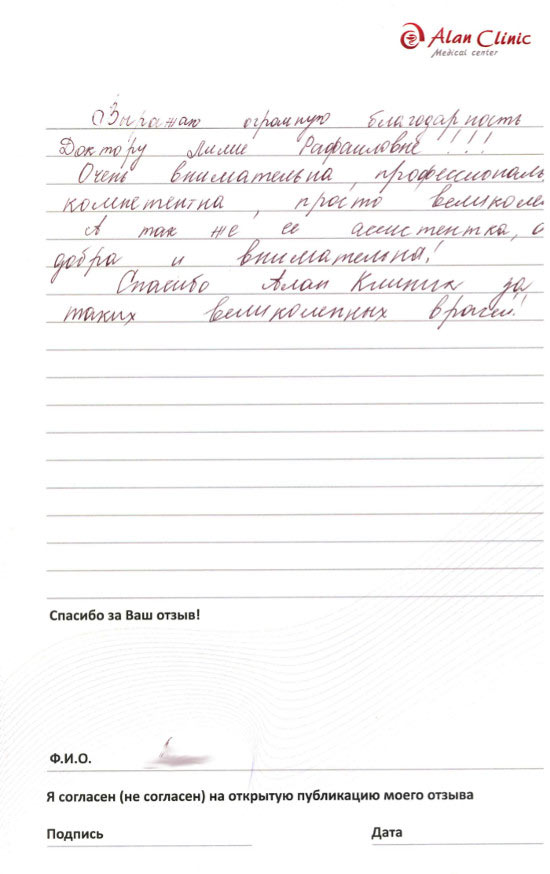 Alan Clinic
Medical center
Выражаю огромную благодарность
Доктору Лилие Рафаиловне!!!!
Очень внимательна, профессиональ
компетентна, просто великоле
А так же ее ассистентка, о
добра и внимательна!
Спасибо Алан Клиник за
таких великолепных врачей!
Спасибо за Ваш отзыв!
Ф.И.О.
Я согласен (не согласен) на открытую публикацию моего отзыва
Подпись Дата